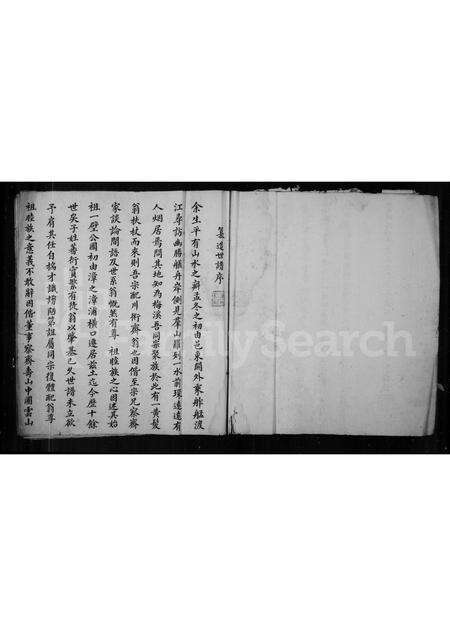 纂造世譜序
余生平有山水之癖孟冬之初由邑東關外乘舴艋渡
江尋訪幽勝艤舟岸側見羣山羅列一水前環遠遠有
人烟居焉問其地知為梅溪吾同宗聚族於此有一黃髮
翁扶杖而來則吾宗配川術齋翁也因偕至宗兄蔡齋
家談論間語及世系翁慨然有尊 祖睦族之心因述其始
祖一壁公國初由漳之漳浦橫口遷居茲土迄今歷十餘
世矣子姓蕃衍實繁有徒翁以肇基已久世譜未立欲
予肩其任自揣才識媕陋第誼屬同宗復體配翁尊
祖睦族之意義不敢辭因偕董事蔡齋壽山中圃雲山
FamilySearch